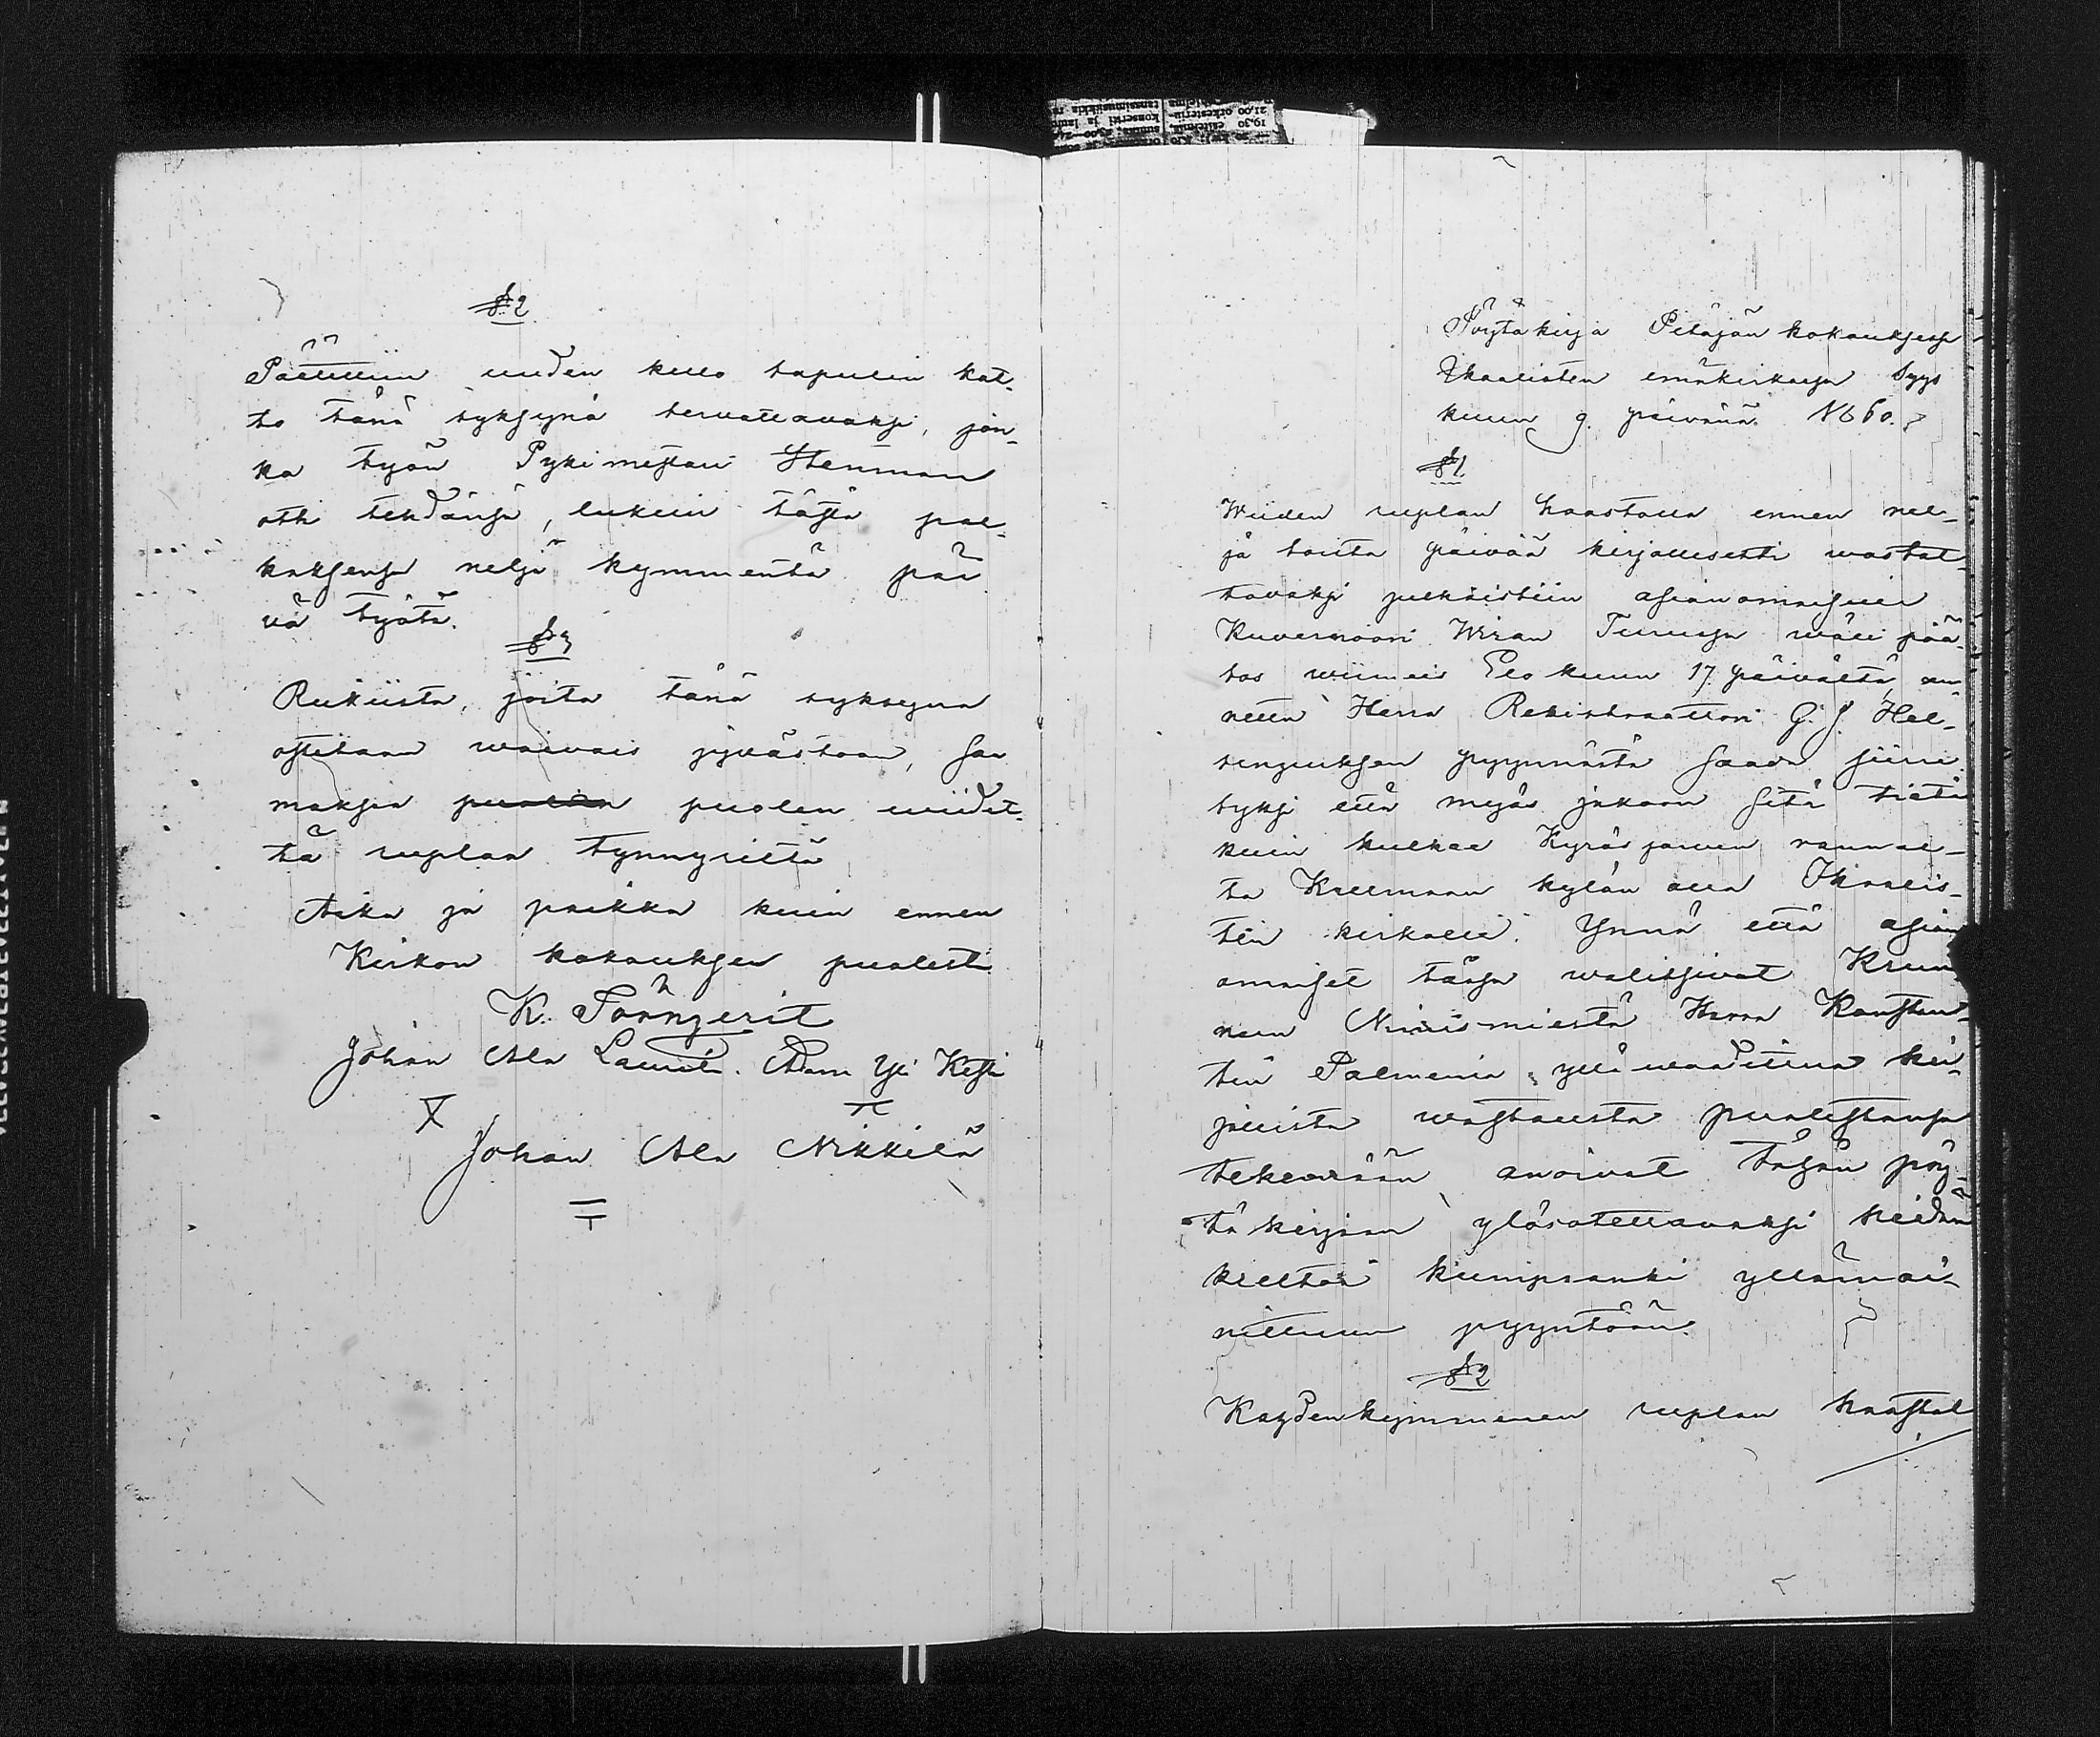 § 2
Päätettiin uuden kello tapulin kat-
to tänä syksynä tervattavaksi, jon-
ka työn Pykimestari Stenman
otti tehdänsä, lukein tästä pal-
kaksensa neljä kymmentä päi
vä työtä.
§ 3
Rukiista, joita tänä syksynä
ostetaan waivais jyvästöön, saa
maksaa puolen puolen wiidet-
tä ruplaa tynnyriltä
Aika ja paikka kuin ennen
Kirkon kokouksen puolesta
K. Törngerit
Johan Ala Lauri. Adam Yli Kesti
Johan Ala Nikkilä
Pöytäkirja Pitäjän kokouksesa
Ikaalisten emäkirkosa Syys
kuun 9. päivänä 1860.
§ 1
Wiiden ruplan haastolla ennen nel-
jä toista päivää kirjallisesti wastat-
tavaksi julkaistiin asianomaisille
Kuvernööri Wiran Turusa wäli pää-
tös wiimeis Elo kuun 17 päivältä, an-
nettu Herra Rekistraattori G. J. Hel-
senjuksen pyynnöstä saada siirre
tyksi että myös jakoon sitä tietä
kuin kulkee Kyrös järven rannal-
ta Kallmaan kylän alla Ikaalis-
ten kirkolle. Ynnä että asian
omaiset tässä walitsivat Kruu
nun Nimismiestä Herra Konstan-
tin Palmenia yllä waadittua kir-
jallista wastausta puolestansa
tekemään anoivat tähän pöy-
tä kirjaan ylösotettavaksi heidän
kieltoa kumpaanki yllämai-
nittuun pyyntöön.
§ 2
Kahdenkymmenen ruplan haastol